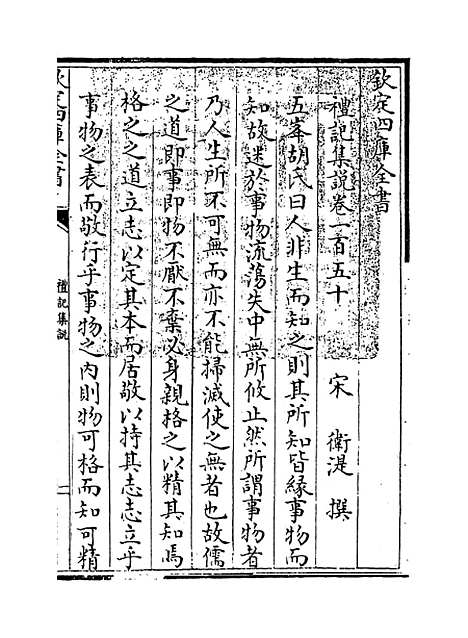 欽定四庫全書
禮記集說卷一百五十
宋 衛湜 撰
五峯胡氏曰人非生而知之則其所知皆縁事物而
知故迷於事物流蕩失中無所攸止然所謂事物者
乃人生所不可無而亦不能掃滅使之無者也故儒
之道即事即物不厭不棄必身親格之以精其知焉
格之之道立志以定其本而居敬以持其志志立乎
事物之表而敬行乎事物之内則物可格而知可精
欽定四庫全書
禮記集說